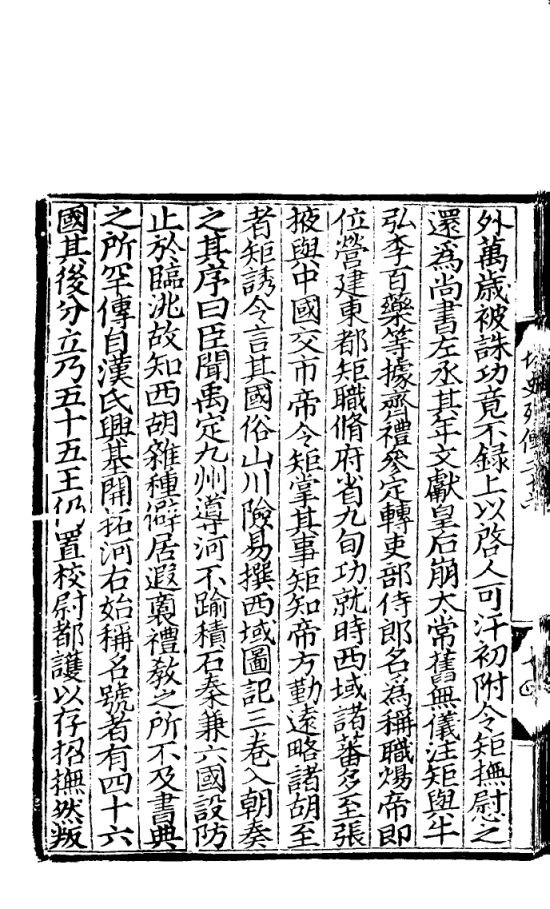 外萬歲被誅功竟不録上以啓人可汗初附令矩撫慰之
還爲尚書左丞其年文獻皇后崩太常舊無儀注矩與牛
弘李百藥等據齊禮參定轉吏部侍郎名爲稱職煬帝即
位營建東都矩職脩府省九旬功就時西域諸蕃多至張
掖與中國交市帝令矩掌其事矩知帝方勤遠略諸胡至
者矩誘令言其國俗山川險易撰西域圖記三卷入朝奏
之其序曰臣聞禹定九州導河不踰積石秦兼六國設防
止於臨洮故知西胡雜種僻居遐裔禮敎之所不及書典
之所罕傳自漢氏興基開拓河右始稱名號者有四十六
國其後分立乃五十五王仍置校尉都護以存招撫然叛